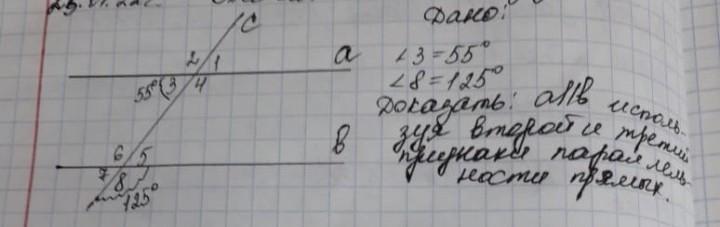 Дано:
C
2 1 a
∠3 = 55°
55° 3 4
∠8 = 125°
Доказать: a||b исполь-
зуя второй и третий
6 5 b
признаки параллель-
7 8
ности прямых.
125°